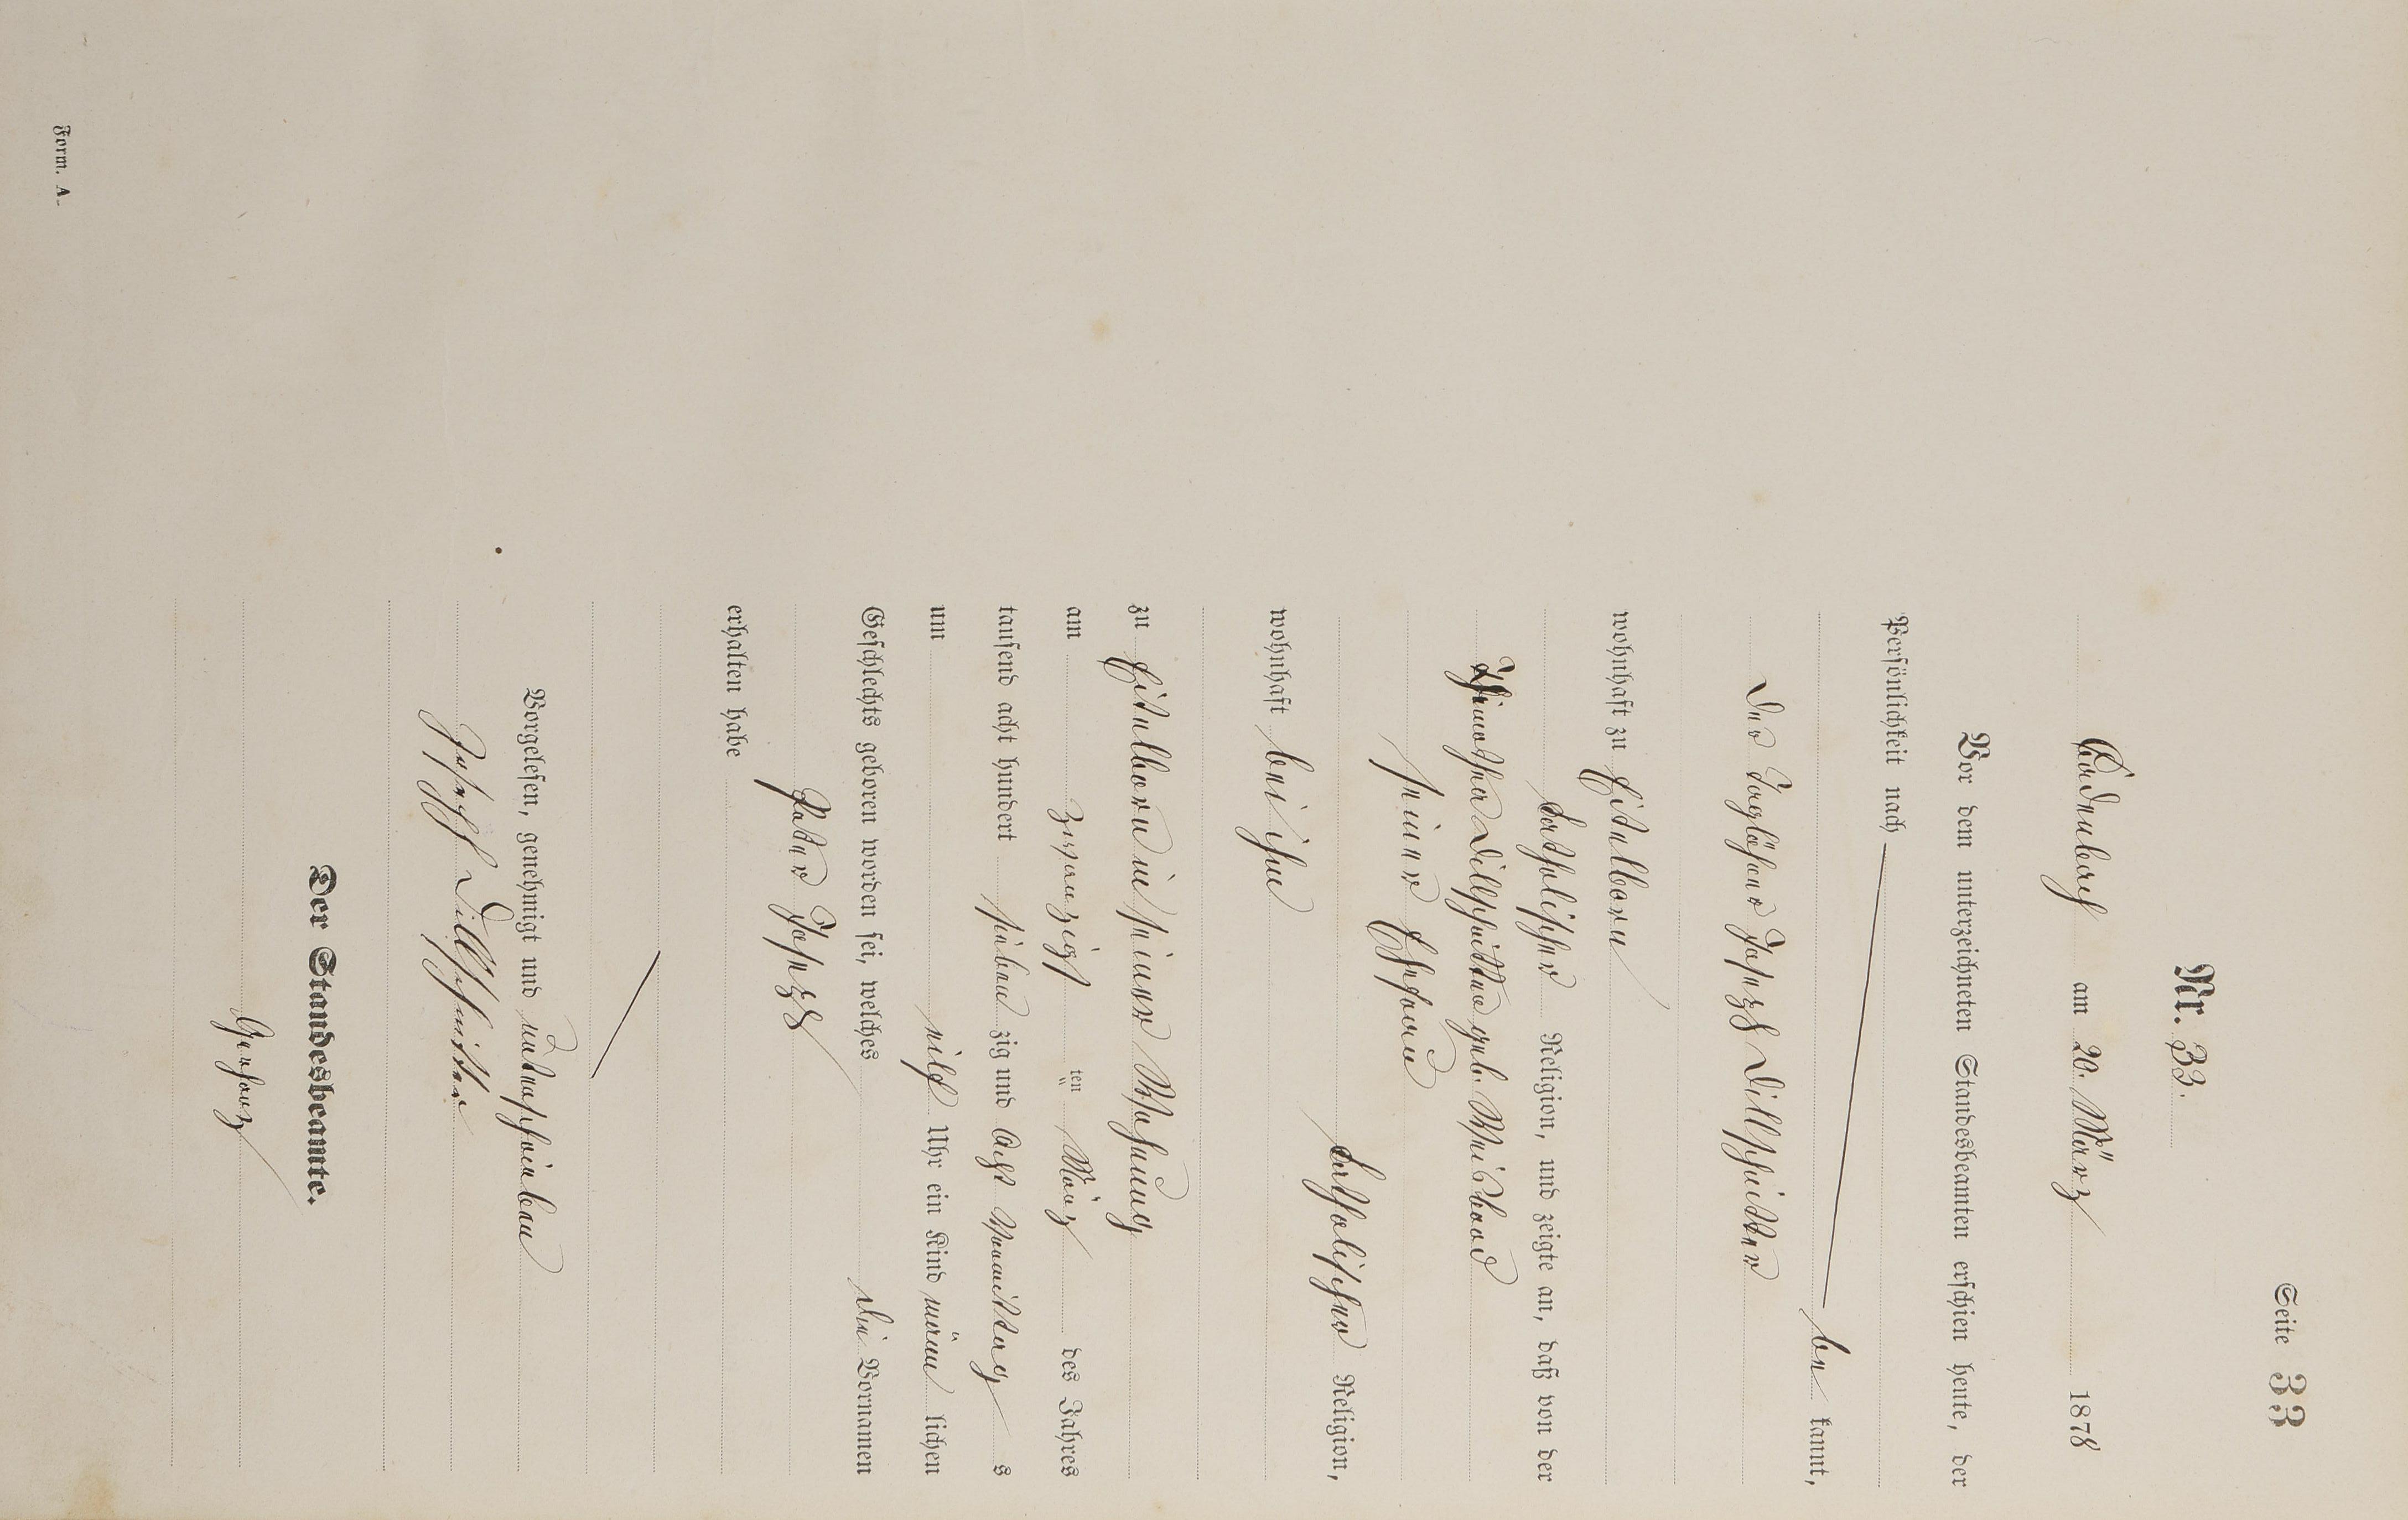 Seite 33
Nr. 33.
Kadenbach am 20. März 1878
Vor dem unterzeichneten Standesbeamten erschien heute, der
Persönlichkeit nach
be kannt,
der Taglöhner Joseph Dillschnitter
wohnhaft zu Eitelborn
katholischer Religion, und zeigte an, daß von der
Dillschnitter geb.
seiner Ehefrau
katholischer Religion,
wohnhaft bei ihm
zu Eitelborn in seiner Wohnung
am zwanzigst ten März des Jahres
tausend acht hundert sieben zig und acht Vormittag s
um eilf Uhr ein Kind männ lichen
Geschlechts geboren worden sei, welches die Vornamen
Peter Joseph
erhalten habe
Vorgelesen, genehmigt und unterschrieben
Joseph Dillschnitter
Der Standesbeamte.
Form. A.